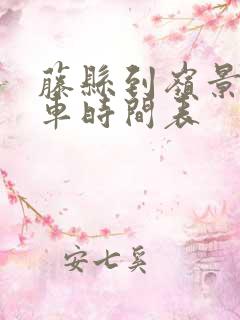 藤縣到嶺景
車時間表
安七奚